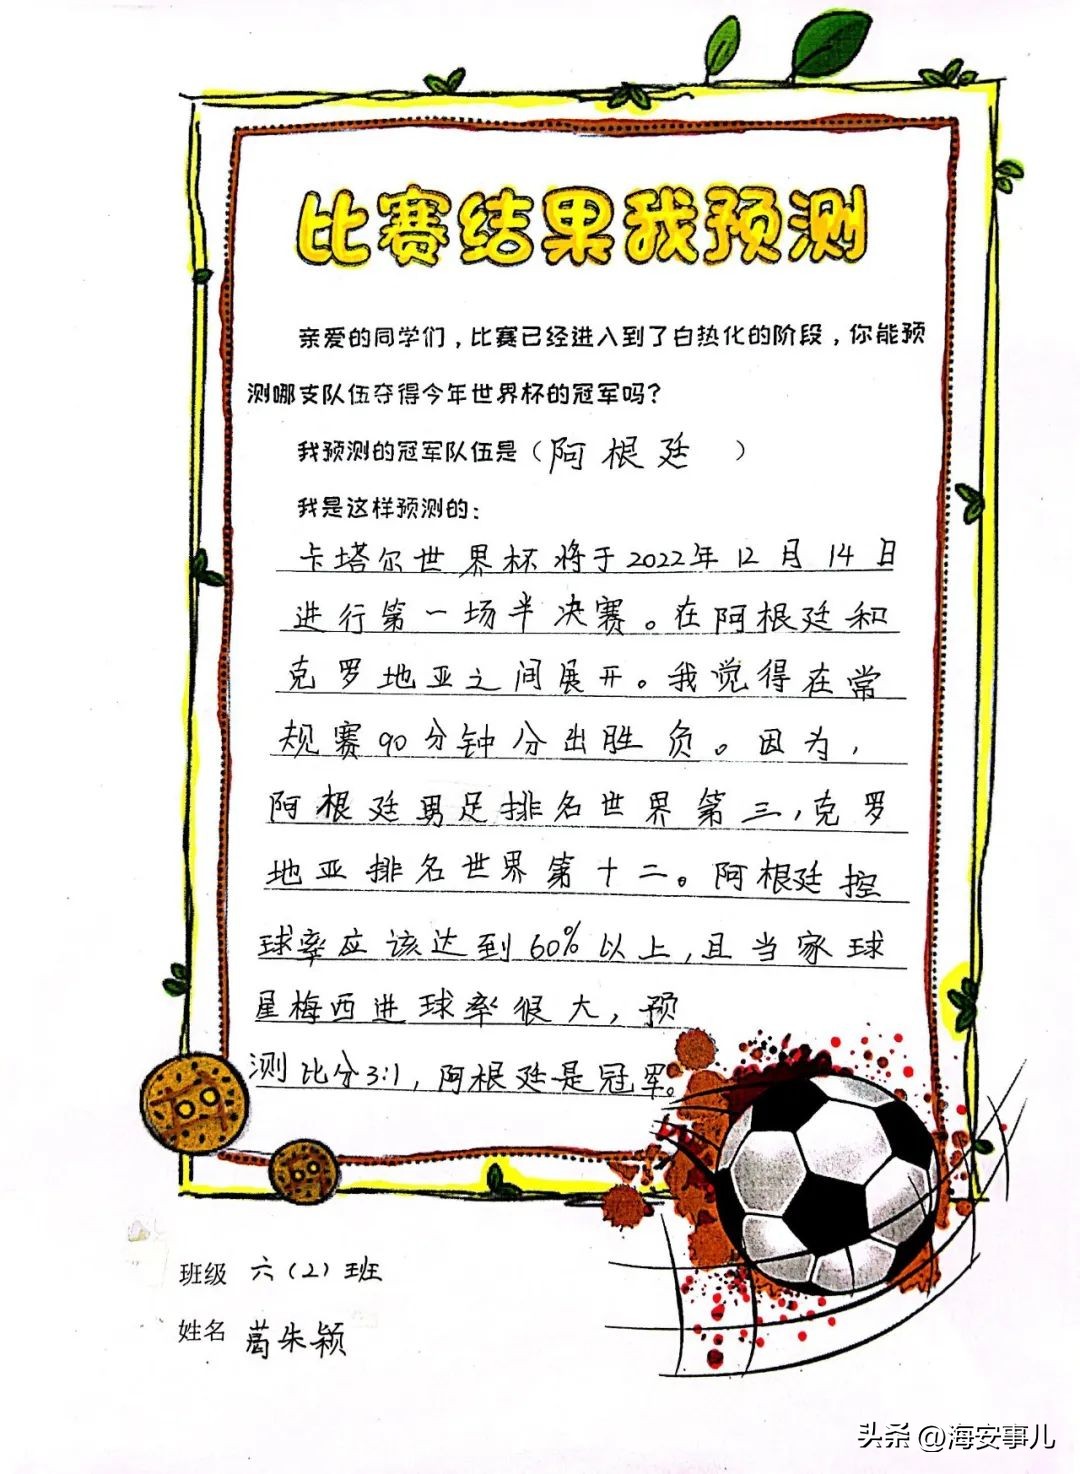 比赛结果我预测
亲爱的同学们，比赛已经进入到了白热化的阶段，你能预
测哪支队伍夺得今年世界杯的冠军吗？
我预测的冠军队伍是（阿根廷 ）
我是这样预测的：
卡塔尔世界杯将于2022年12月14日
进行第一场半决赛。在阿根廷和
克罗地亚之间展开。我觉得在常
规赛90分钟分出胜负。因为，
阿根廷男足排名世界第三，克罗
地亚排名世界第十二。阿根廷控
球率应该达到60%以上，且当家球
星梅西进球率很大，预
测比分3:1，阿根廷是冠军。
班级 六（2）班
姓名 葛朱颖
头条 @海安事儿